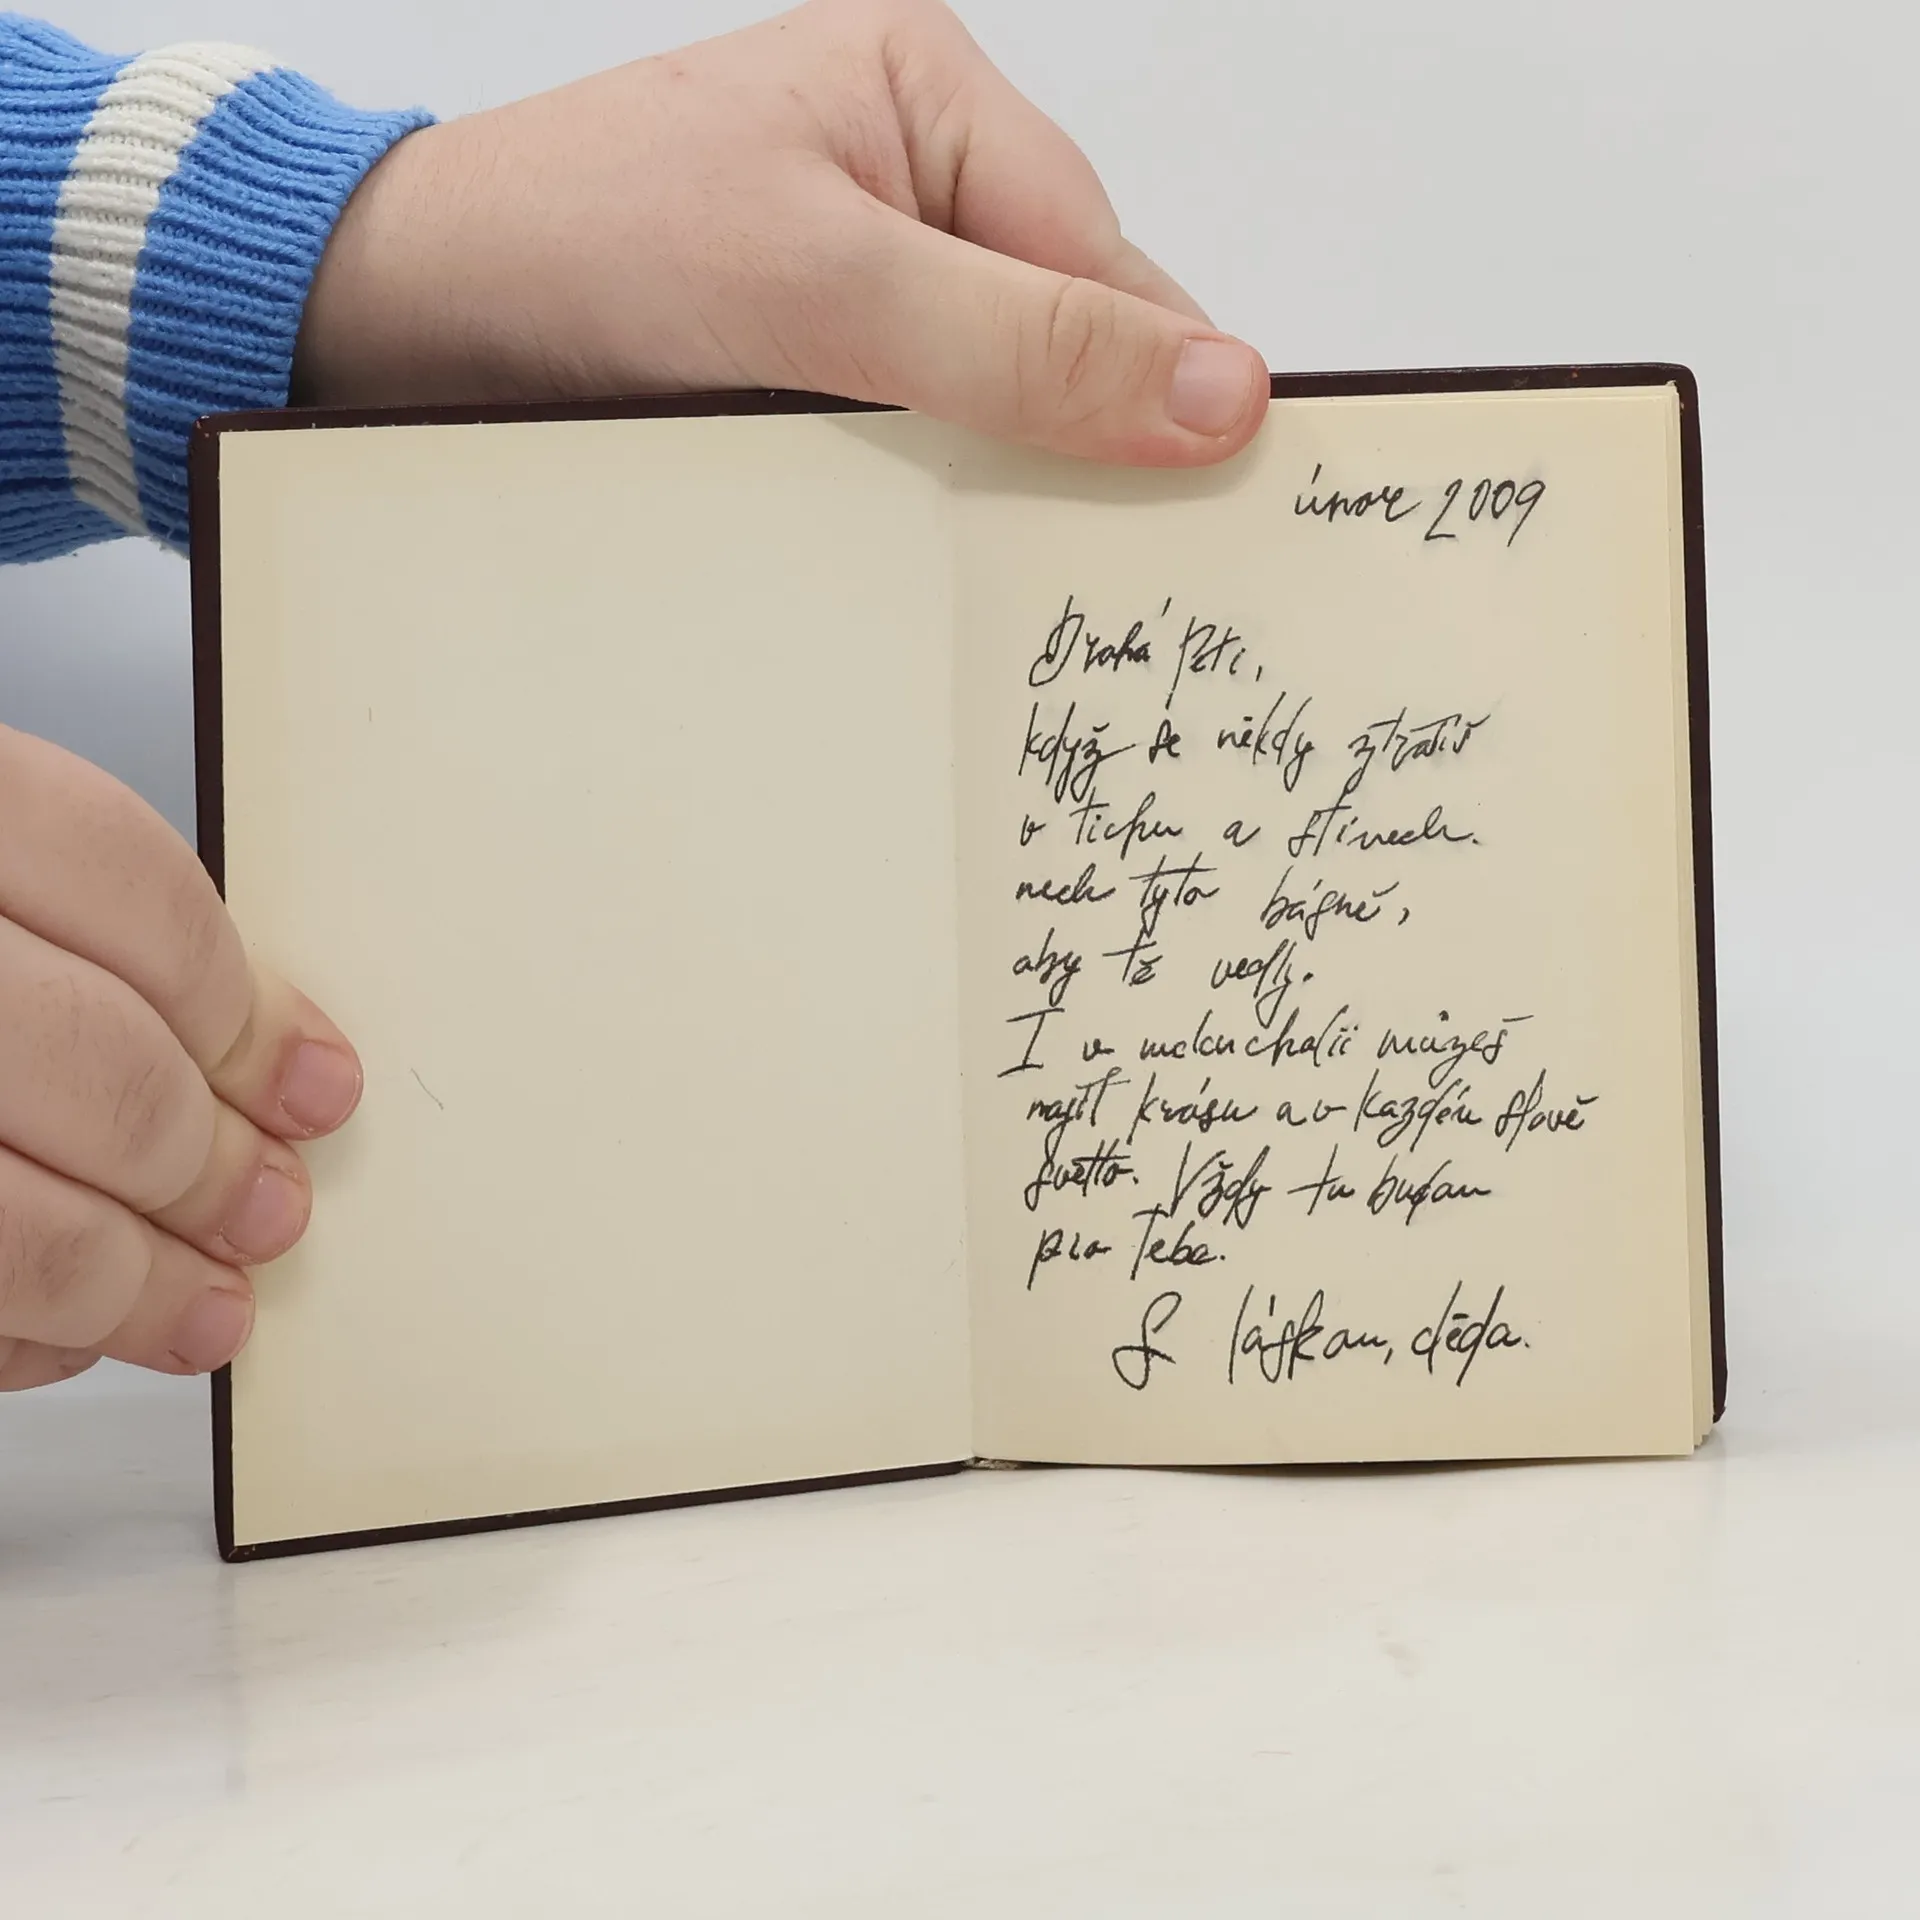 únor 2009
Drahá Peti,
když se někdy ztratíš
v tichu a stínech.
nech tyto básně,
aby tě vedly.
I v melancholii můžeš
najít krásu a v každém slově
světlo. Vždy tu budou
pro Tebe.
S láskou, děda.